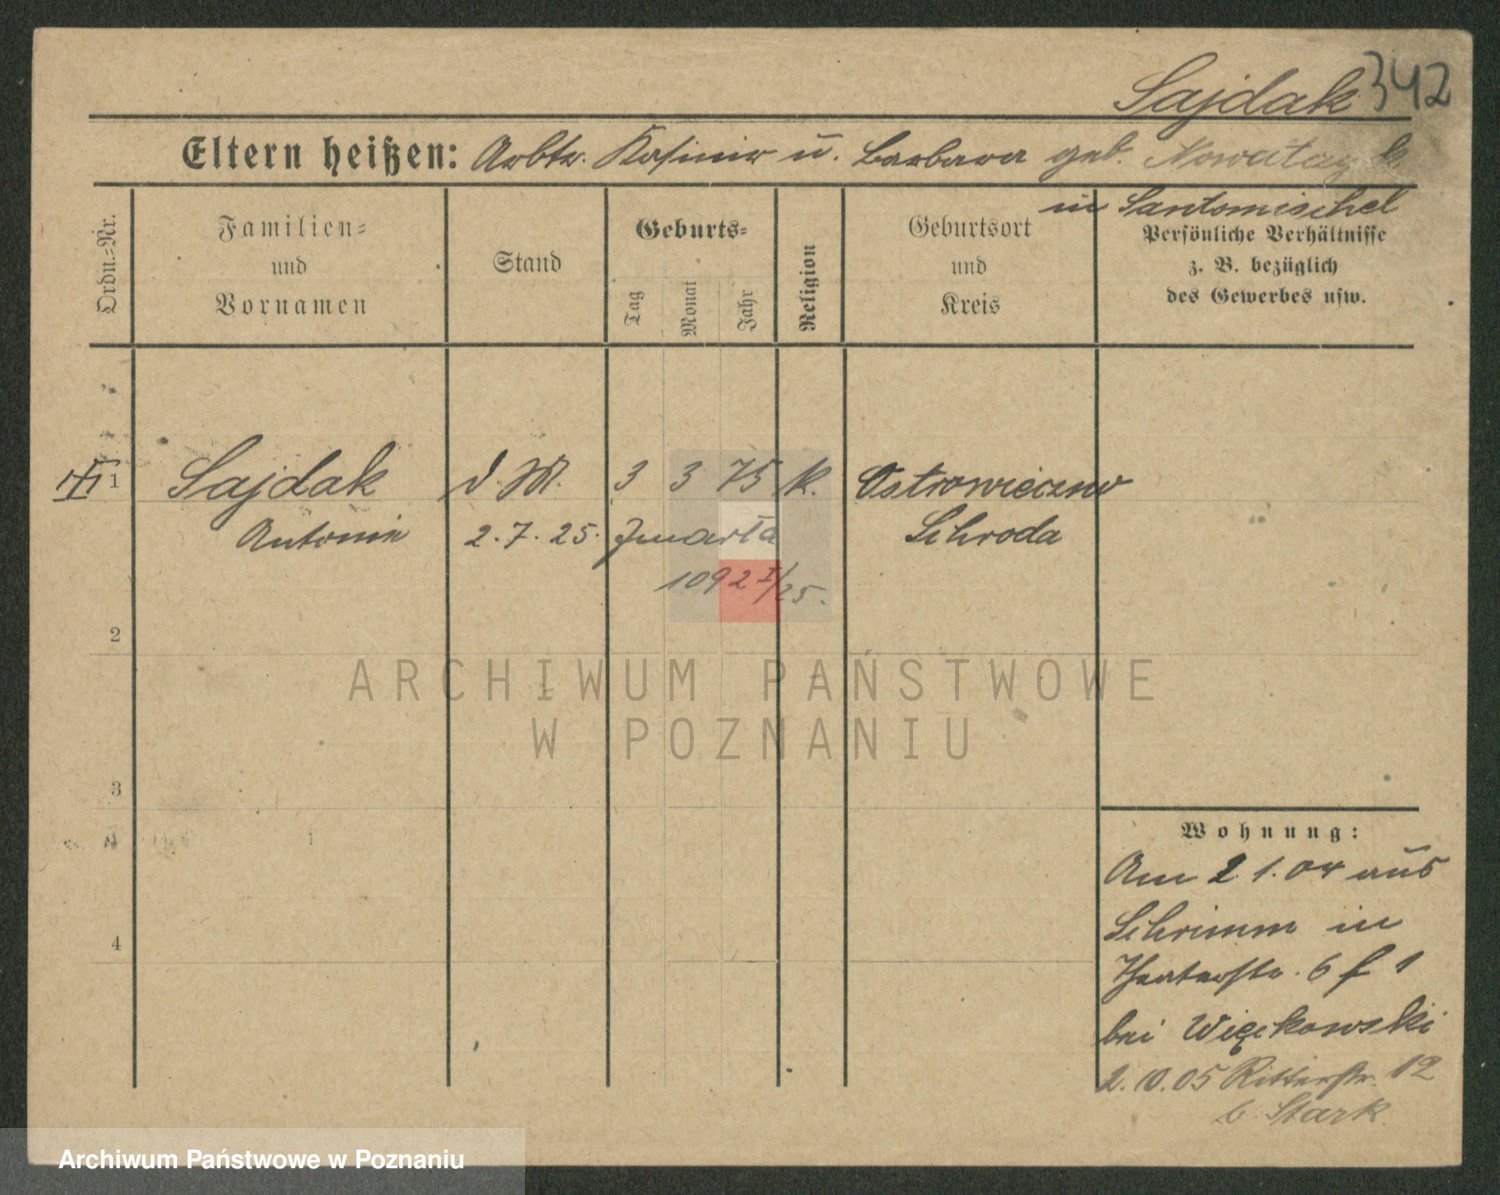 Sajdak 342
Eltern heißen: Arbtr. Kasimir u. Barbara geb. Nowatczyk
in Santomischel
Ordn.-Nr.
Familien- und Vornamen
Stand
Geburts-
Tag
Monat
Jahr
Religion
Geburtsort und Kreis
Persönliche Verhältnisse
z. B. bezüglich
des Gewerbes usw.
1 Sajdak d. M. 3 3 75 k. Ostrowieczno
Antonie 2.7.25. Zmarła Schroda
1092 I/25.
2
3
4
ARCHIWUM PAŃSTWOWE
W POZNANIU
Wohnung:
Am 2.1.04 aus
Schrimm in
Theaterstr. 6 f 1
bei Więckowski
2.10.05 Ritterstr. 12
b. Stark
Archiwum Państwowe w Poznaniu